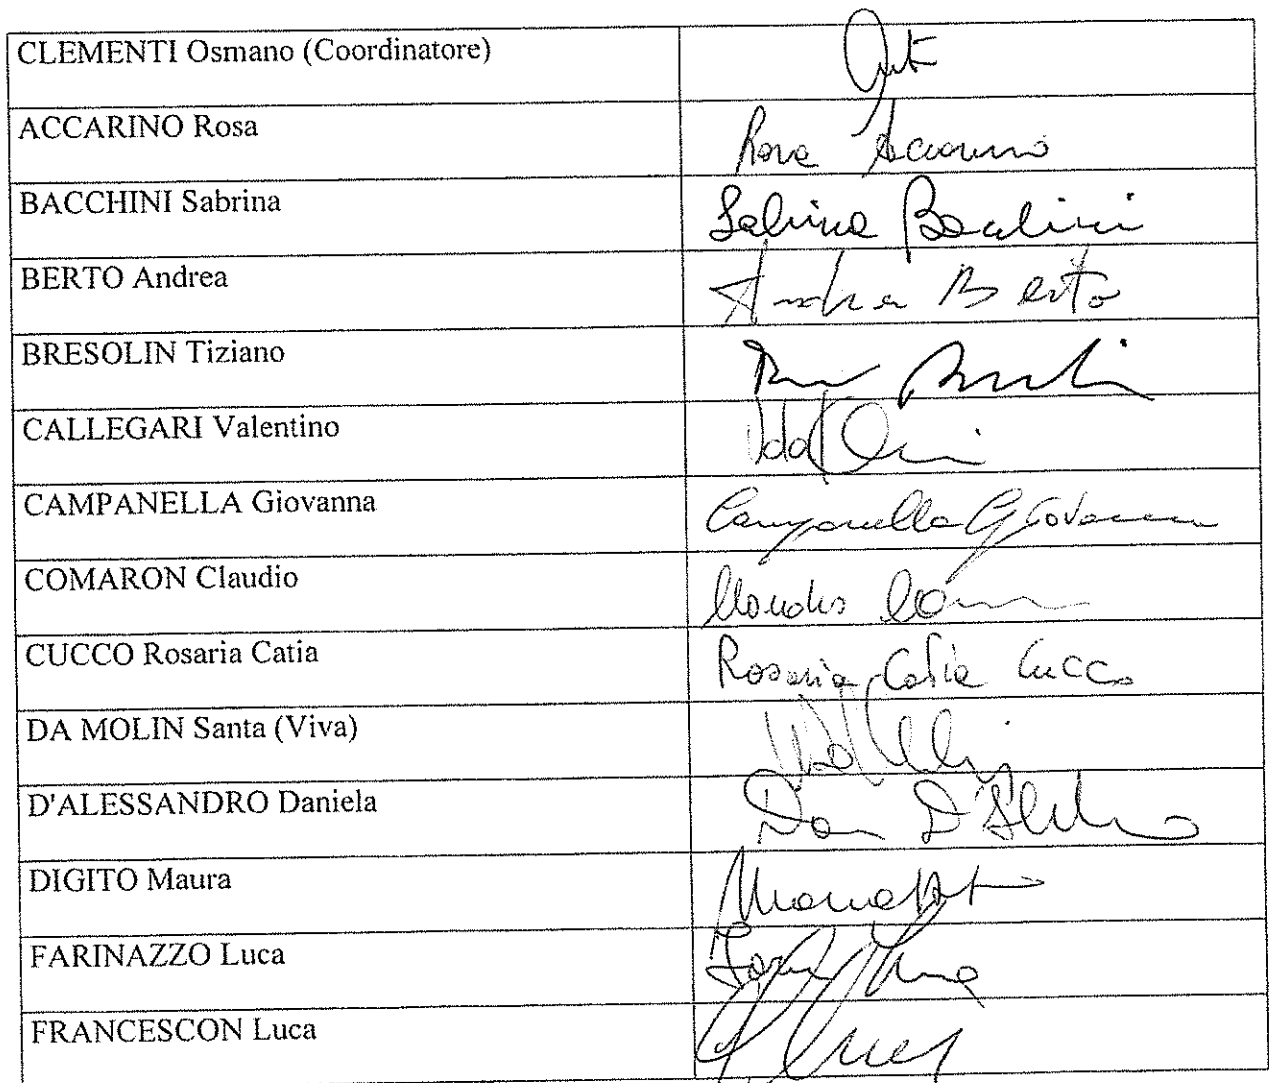 CLEMENTI Osmano (Coordinatore)
ACCARINO Rosa Rosa Accarino
BACCHINI Sabrina Sabrina Bacchini
BERTO Andrea Andrea Berto
BRESOLIN Tiziano
CALLEGARI Valentino
CAMPANELLA Giovanna Campanella Giovanna
COMARON Claudio Claudio
CUCCO Rosaria Catia Rosaria Catia Cucco
DA MOLIN Santa (Viva)
D'ALESSANDRO Daniela
DIGITO Maura
FARINAZZO Luca
FRANCESCON Luca